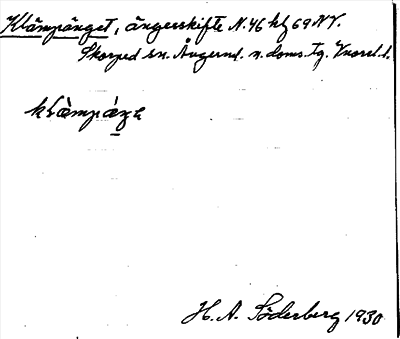 Klämpänget, ängerskifte N. 46 kbl 69 NV.
Skorped sn. Ångerml. n. doms. tg. Vnorrl. l.
klämpäŋe
H. A. Söderberg 1930